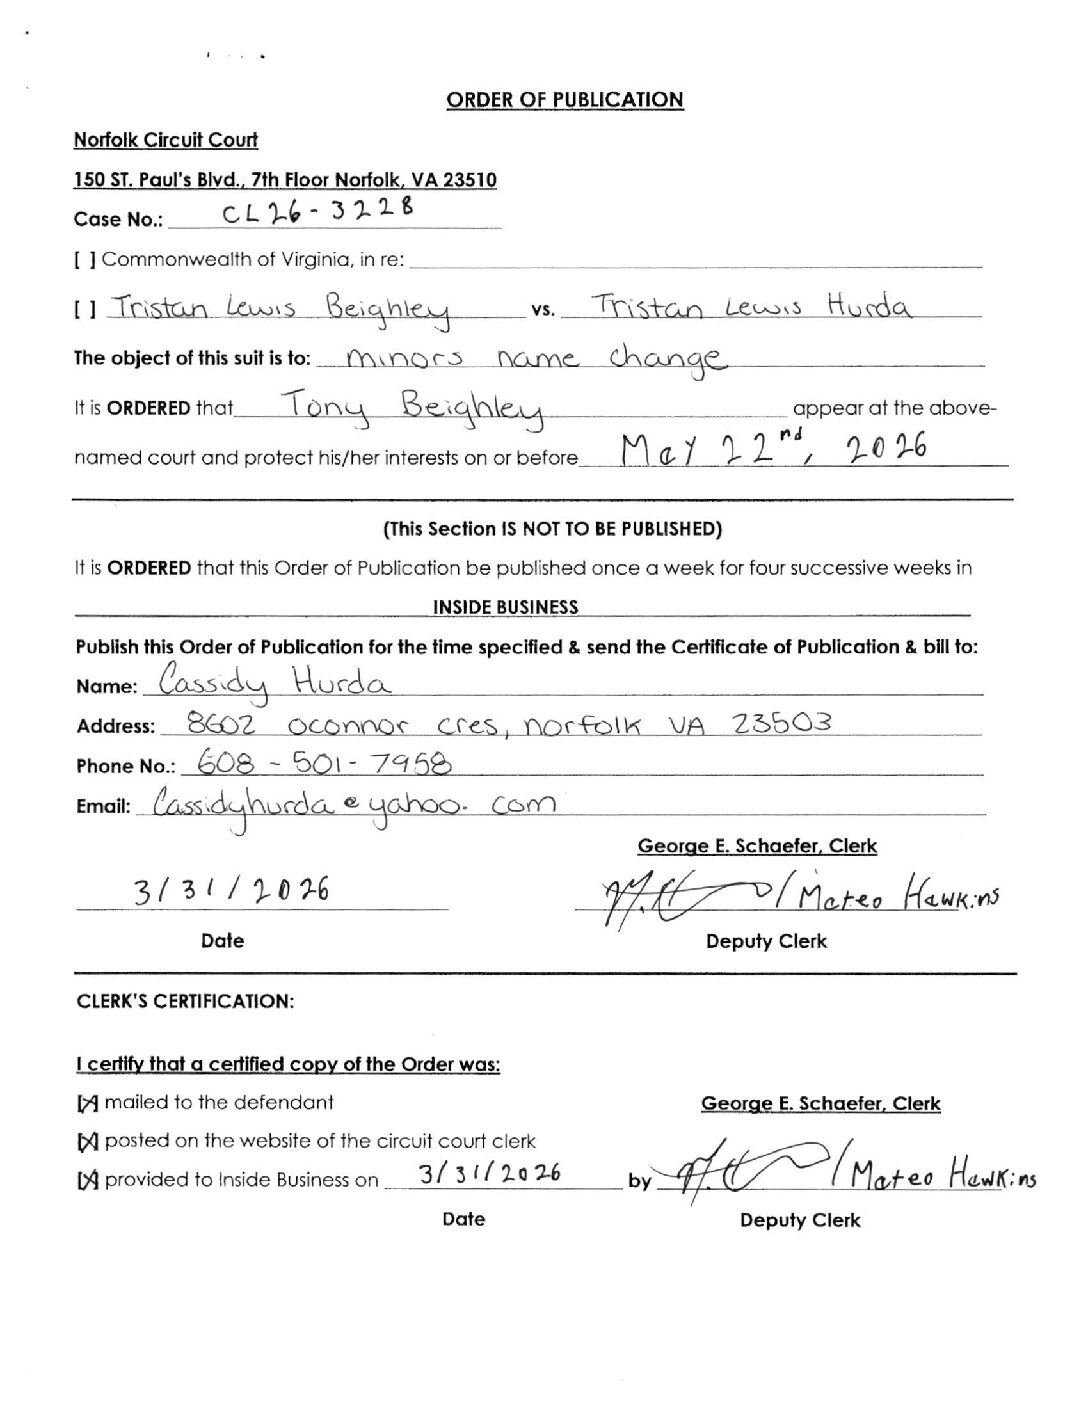 ORDER OF PUBLICATION
Norfolk Circuit Court
150 ST. Paul's Blvd., 7th Floor Norfolk, VA 23510
Case No.: CL26-3228
[ ] Commonwealth of Virginia, in re:
[ ] Tristan Lewis Beighley vs. Tristan Lewis Hurda
The object of this suit is to: minors name change
It is ORDERED that Tony Beighley appear at the above-
named court and protect his/her interests on or before May 22nd, 2026
(This Section IS NOT TO BE PUBLISHED)
It is ORDERED that this Order of Publication be published once a week for four successive weeks in
INSIDE BUSINESS
Publish this Order of Publication for the time specified & send the Certificate of Publication & bill to:
Name: Cassidy Hurda
Address: 8602 oconnor cres, norfolk VA 23503
Phone No.: 608-501-7958
Email: Cassidyhurda@yahoo.com
George E. Schaefer, Clerk
3/31/2026 / Mateo Hawkins
Date Deputy Clerk
CLERK'S CERTIFICATION:
I certify that a certified copy of the Order was:
[X] mailed to the defendant George E. Schaefer, Clerk
[X] posted on the website of the circuit court clerk
[X] provided to Inside Business on 3/31/2026 by / Mateo Hawkins
Date Deputy Clerk